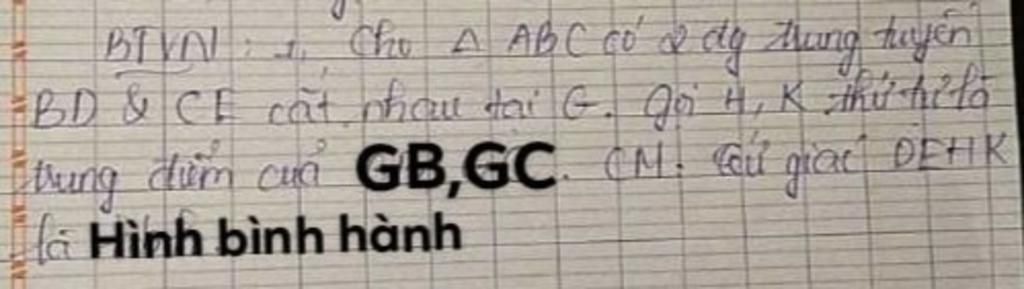 BTVN: 1, Cho Δ ABC có 2 đg trung tuyến
BD & CE cắt nhau tại G. Gọi H, K thứ tự là
trung điểm của GB,GC. CM: tứ giác DEHK
là Hình bình hành